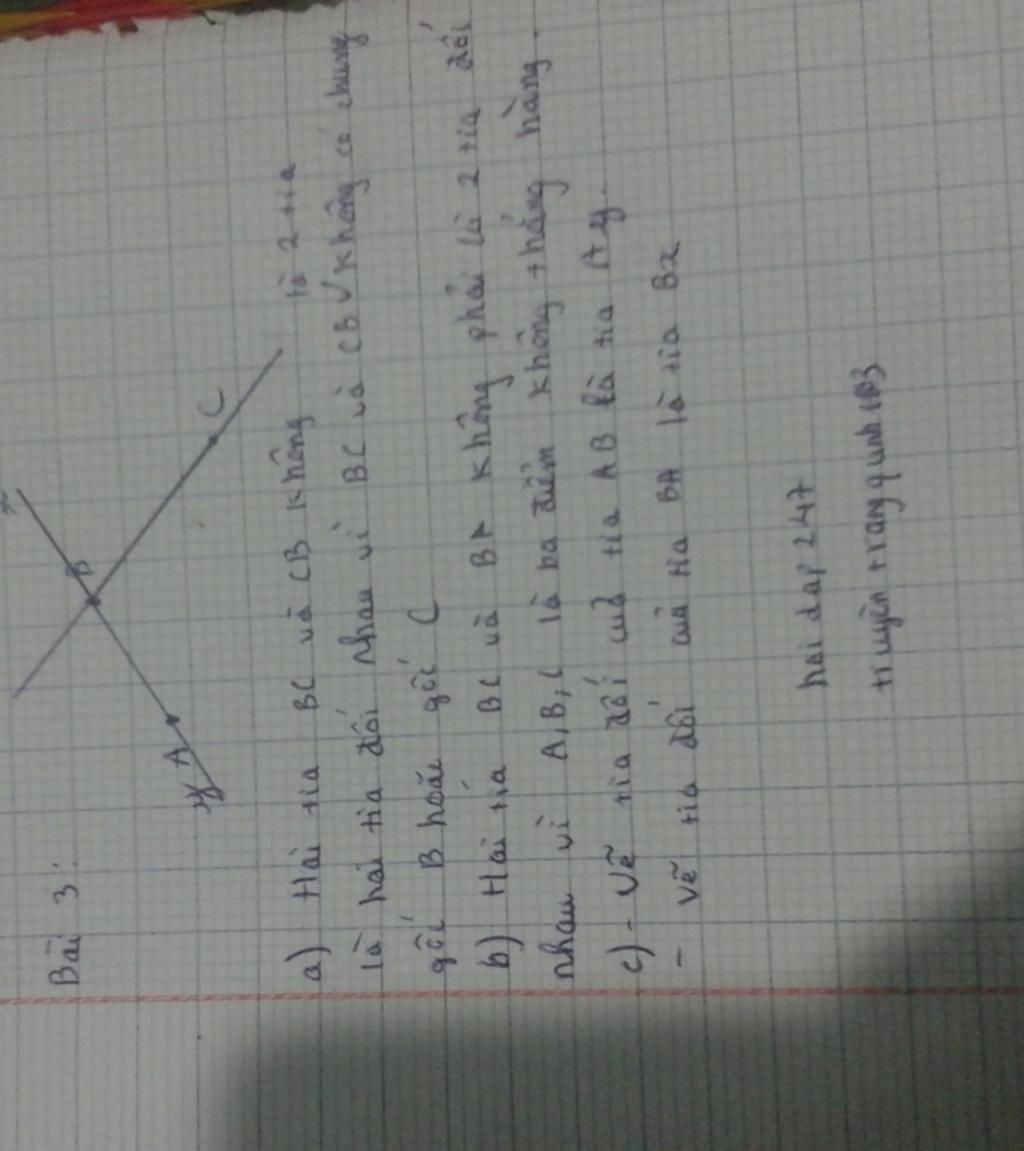 Bài 3:
x
B
A
y
C
a) Hai tia BC và CB không là 2 tia
là hai tia đối nhau vì BC và CB √ không có chung
gốc B hoặc gốc C
b) Hai tia BC và BA không phải là 2 tia đối
nhau vì A, B, C là ba điểm không thẳng hàng.
c) - Vẽ tia đối cuả tia AB là tia Ay.
- Vẽ tia đối của tia BA là tia Bx
hoi dap 247